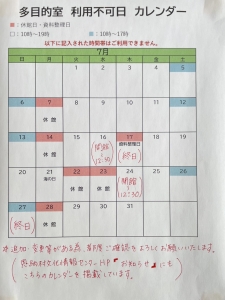 多目的室 利用不可日 カレンダー
■：休館日・資料整理日
□：10時～19時 ■：10時～17時
以下に記入された時間帯はご利用できません。
7月
日 月 火 水 木 金 土
1 2 3 4 5
6 7 8 9 10 11 12
休館
13 14 15 16 17 18 19
休館 開館 12:30 資料整理日 (終日)
20 21 22 23 24 25 26
海の日 休館 休館 開館 12:30
27 28 29 30 31
(終日) 休館
※追加・変更等がある為、事際ご確認をよろしくお願いいたします。
文化情報センターHP お知らせ にも
こちらのカレンダーを掲載しています。